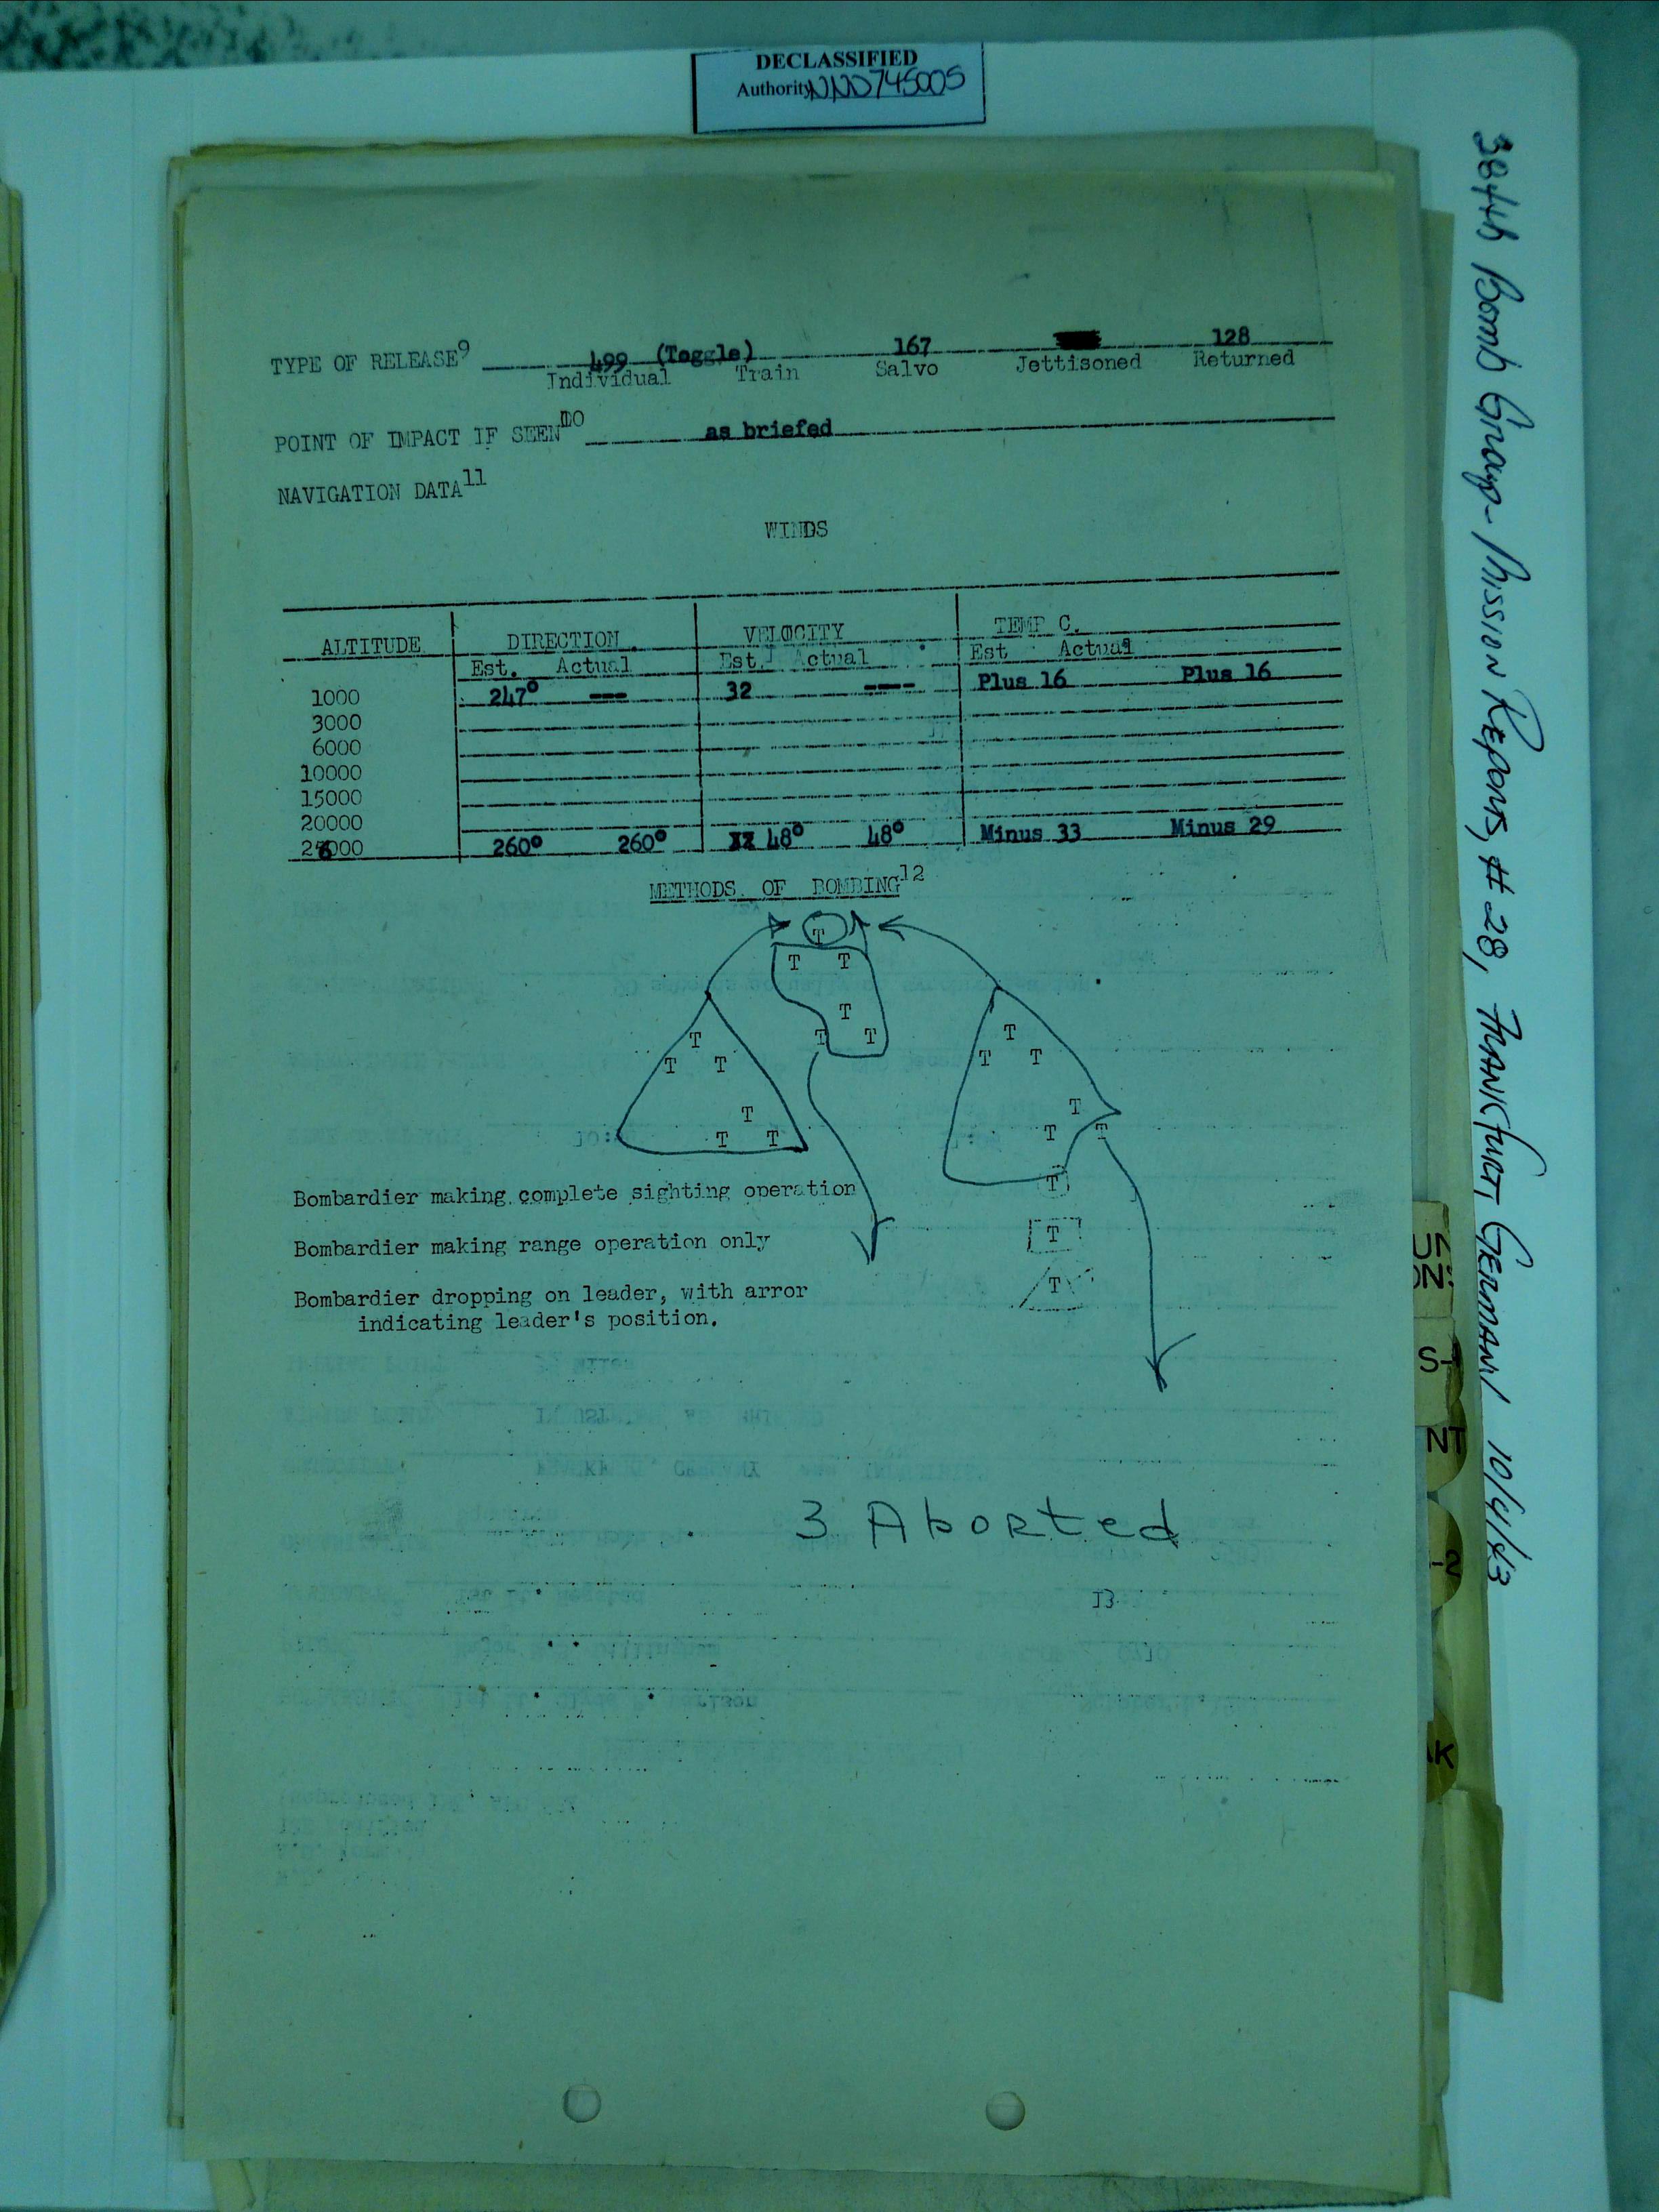 DECLASSIFIED
Authority NND745005
384th Bomb Group - Mission Reports, # 28, FRANKfurt, GERMANY 10/4/43
TYPE OF RELEASE9 499 (Toggle) 167 128
Individual Train Salvo Jettisoned Returned
POINT OF IMPACT IF SEEN10 as briefed
NAVIGATION DATA11
WINDS
ALTITUDE DIRECTION VELOCITY TEMP C.
Est. Actual Est. Actual Est Actual
1000 247° --- 32 ---- Plus 16 Plus 16
3000
6000
10000
15000
20000
26000 260° 260° 48° 48° Minus 33 Minus 29
METHODS OF BOMBING12
T
T T
T
T T
T
T T
T
T T
T
T T
T
T T
Bombardier making complete sighting operation T
Bombardier making range operation only T
Bombardier dropping on leader, with arror T
indicating leader's position.
3 Aborted
13
UN
ON:
S-
NT
-2
AK